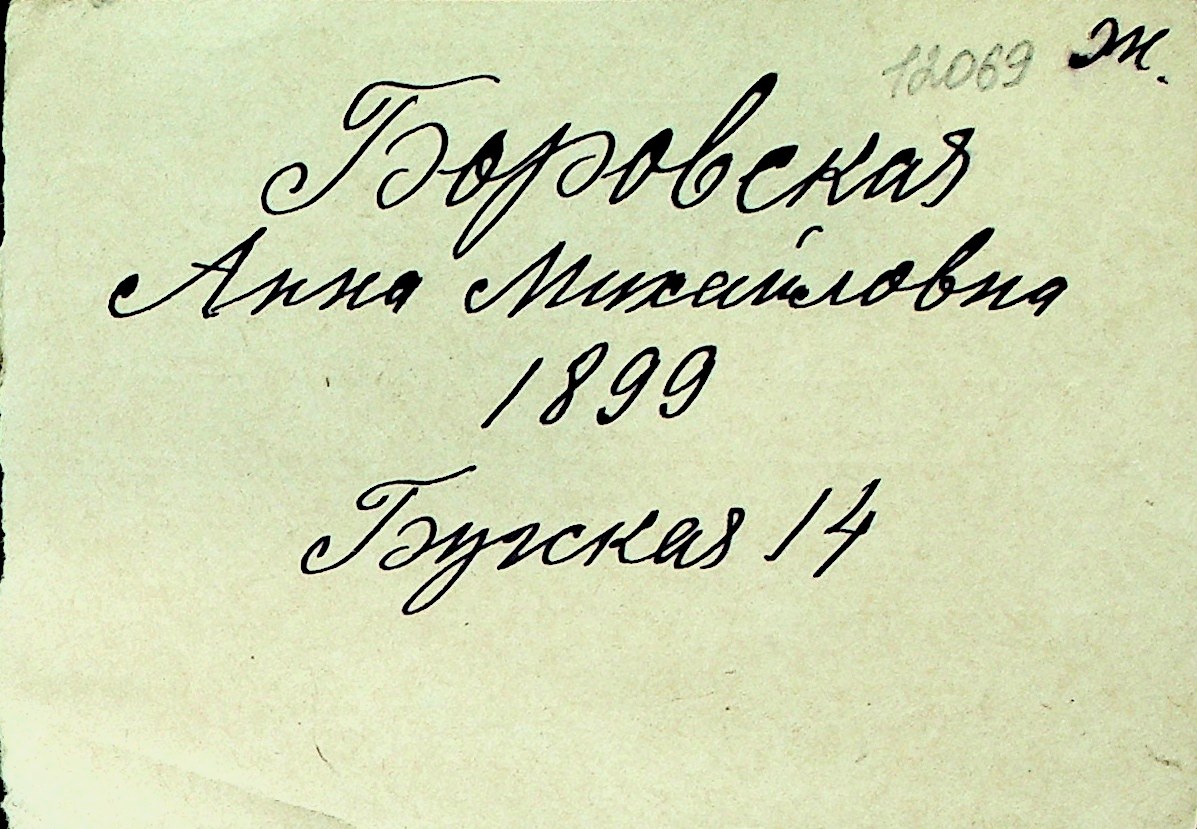 12069 Ж.
Боровская
Анна Михайловна
1899
Бугская 14